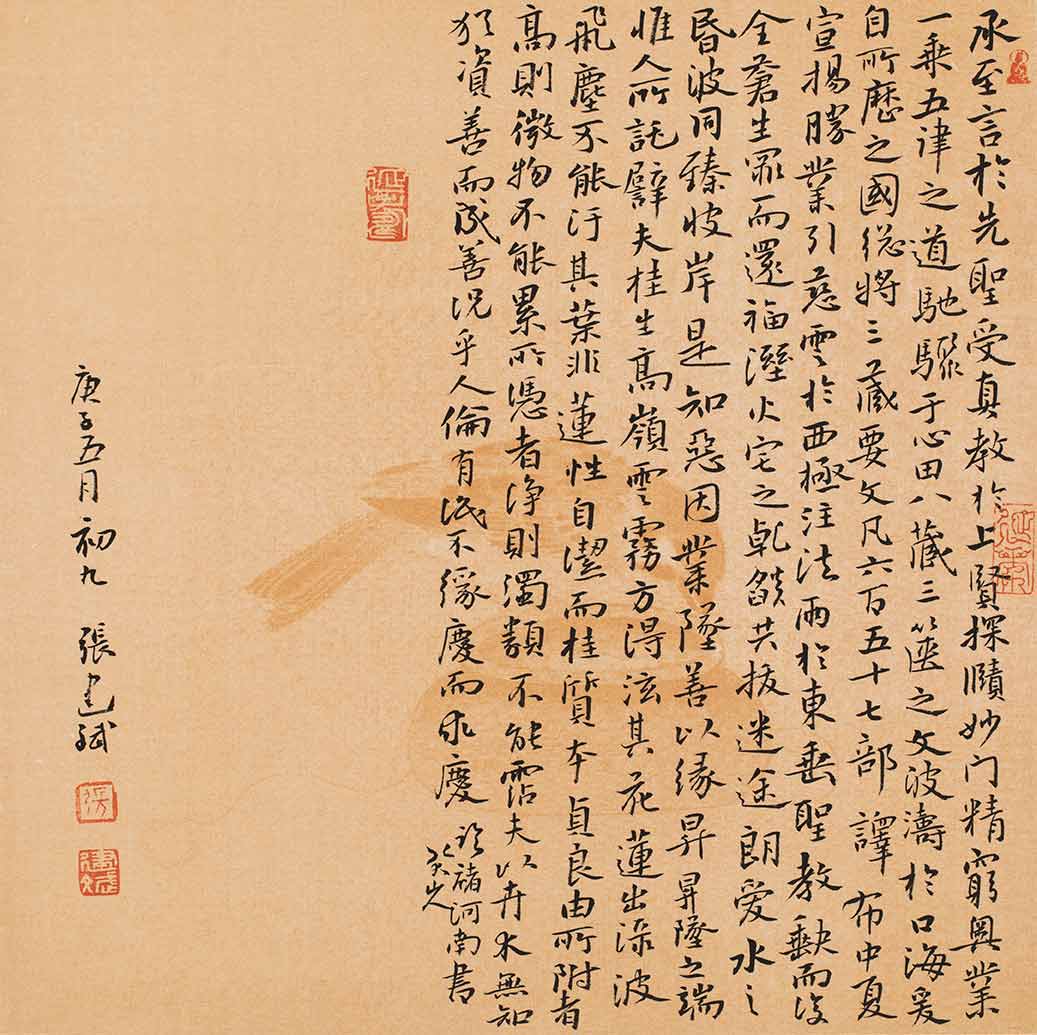 承至言於先聖受真教於上賢探賾妙门精窮奧業
一乘五律之道馳驟于心田八藏三篋之文波濤於口海爰
自所歷之國総將三藏要文凡六百五十七部譯布中夏
宣揚勝業引慈雲於西極注法雨於東垂聖教缺而復
全蒼生罪而還福濕火宅之乾燄共拔迷途朗愛水之
昏波同臻彼岸是知惡因業墜善以緣昇昇墜之端
惟人所託譬夫桂生高嶺雲霧方得泫其花蓮出淥波
飛塵不能汙其葉非蓮性自潔而桂質本貞良由所附者
高則微物不能累所憑者淨則濁類不能霑夫以卉木無知
猶資善而成善況乎人倫有識不緣慶而求慶
臨褚河南书
庚子五月初九 張建斌